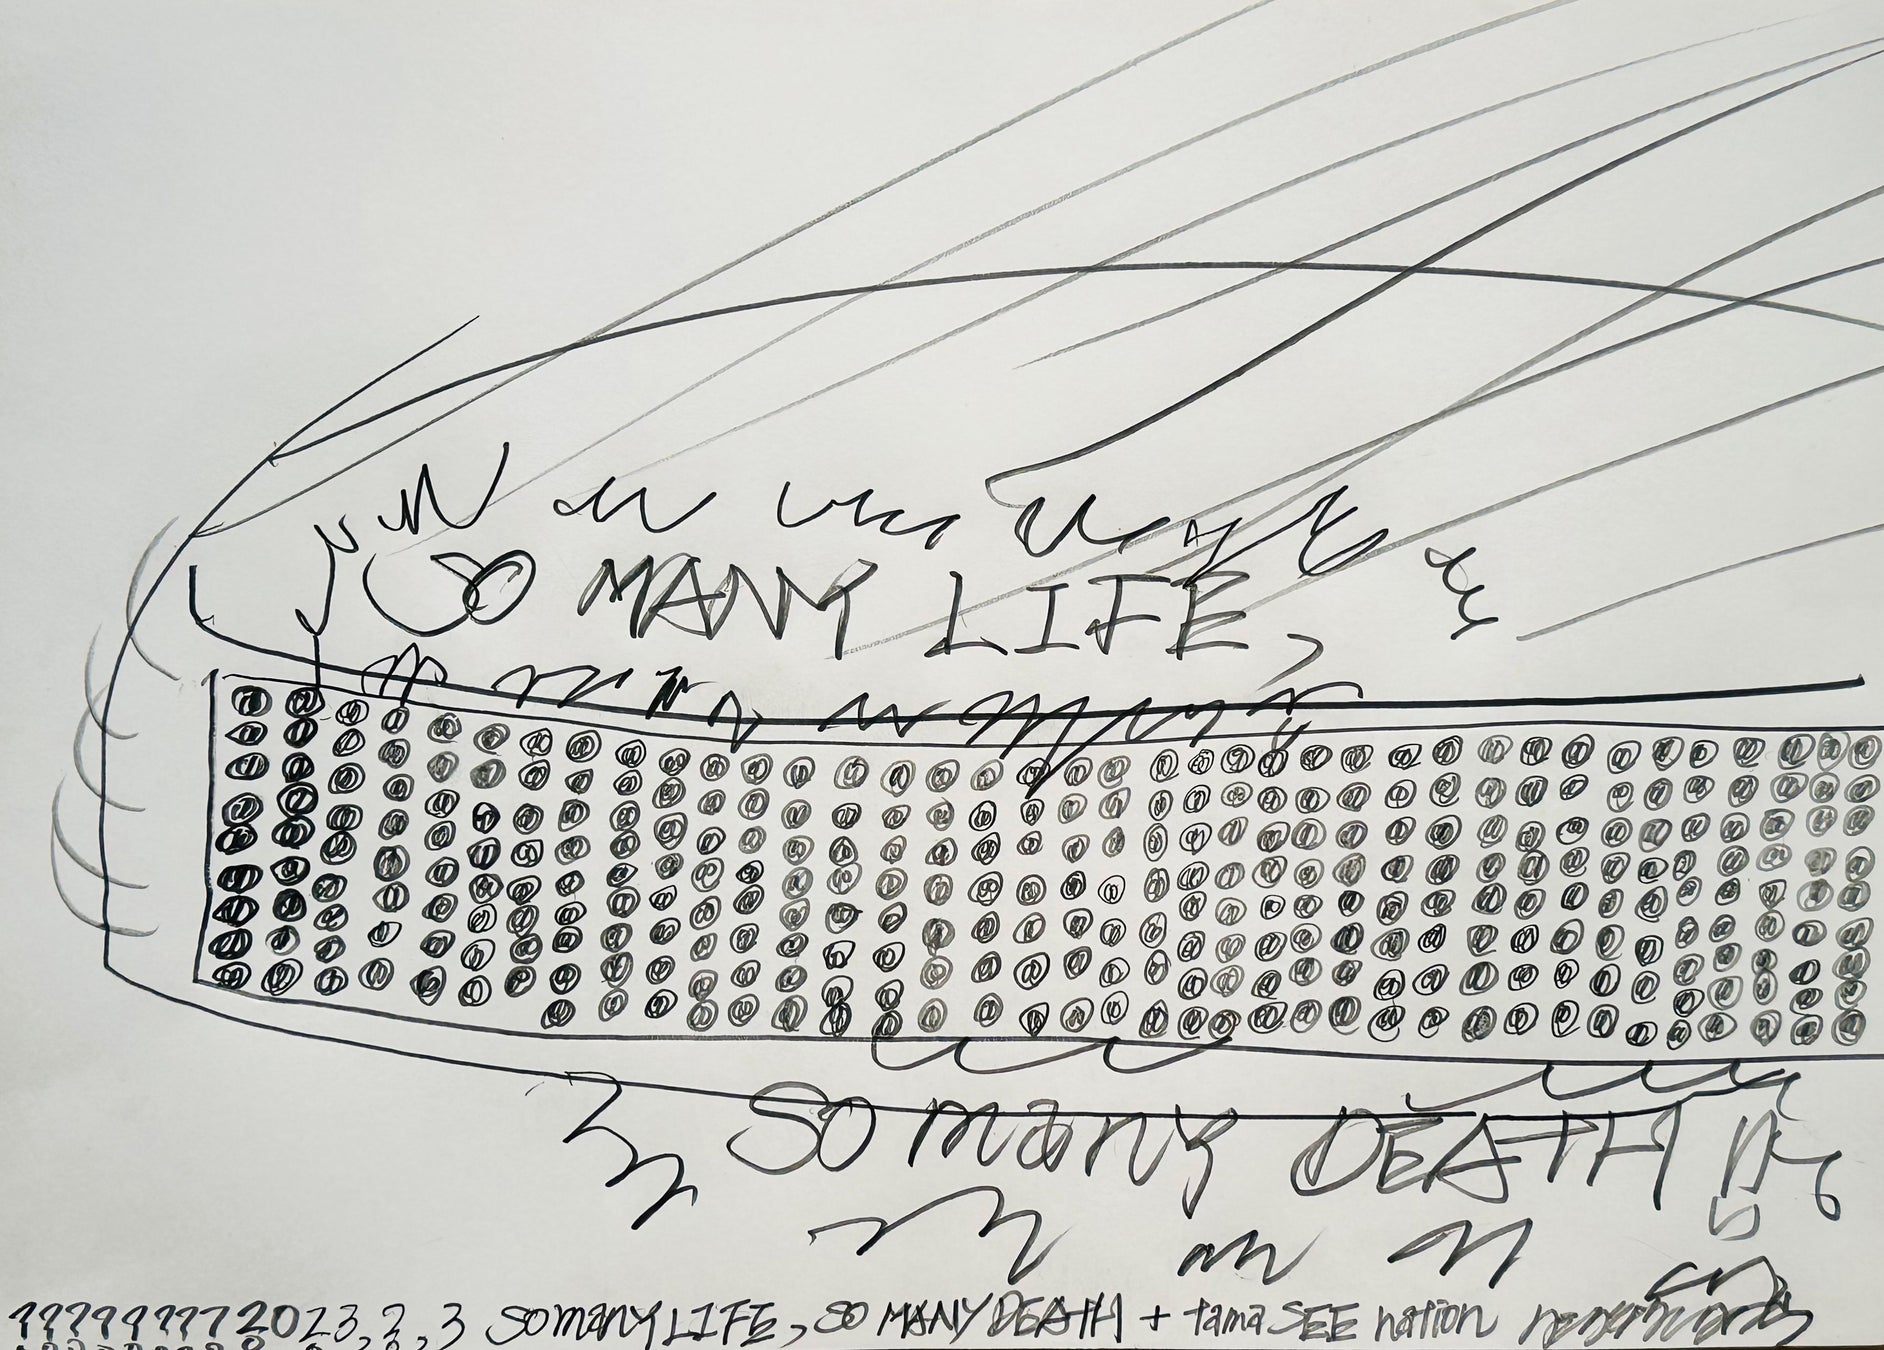 SO MANY LIFE,
SO MANY DEATH
???????? 2023,2,3 SO MANY LIFE, SO MANY DEATH + tama SEE nation